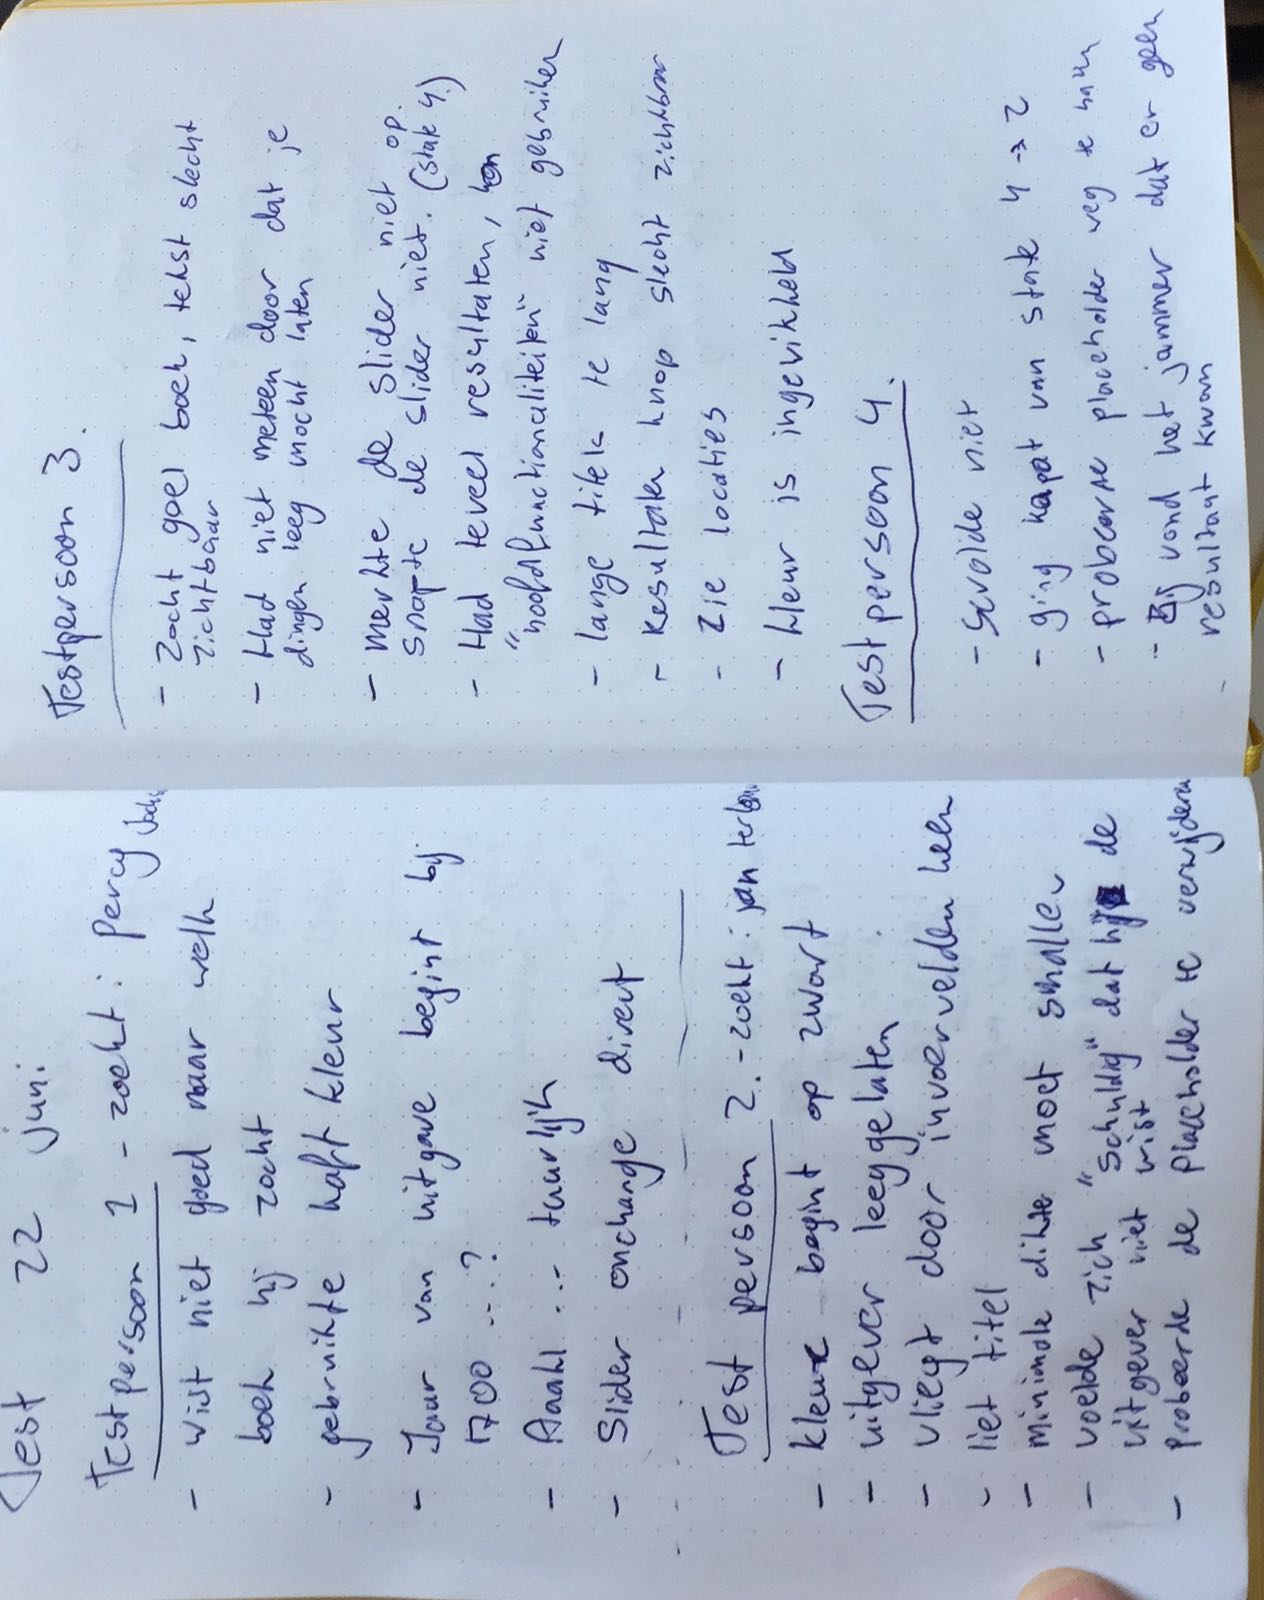 Test 22 juni
Testpersoon 1 - zocht: Percy
- wist niet goed naar welk
boek hij zocht
- gebruikte haft kleur
- Jaar van uitgave begint bij
1700 ...?
- Aantal ... tuurlijk
- Slider onchange direct
Test persoon 2. - zocht: jan
- kleur begint op zwart
- uitgever leeg gelaten
- vliegt door invoervelden heen
- liet titel
- minimale dikte moet smaller
- voelde zich "schuldig" dat hij de
uitgever niet wist
- probeerde de placeholder te verwijderen
Testpersoon 3.
- Zocht goel boek, tekst slecht
zichtbaar
- Had niet meteen door dat je
dingen leeg mocht laten
- merkte de slider niet op.
snapte de slider niet. (stak 4.)
- Had teveel resultaten, kon
"hoofdfunctionaliteiten" niet gebruiken
- lange titels te lang
- Resultaten knop slecht zichtbaar
- Zie locaties
- kleur is ingewikkeld
Test persoon 4.
- Scrolde niet
- ging kapot van stak 4 → 2
- probeerde placeholder weg te halen
- vond het jammer dat er geen
resultaat kwam
-